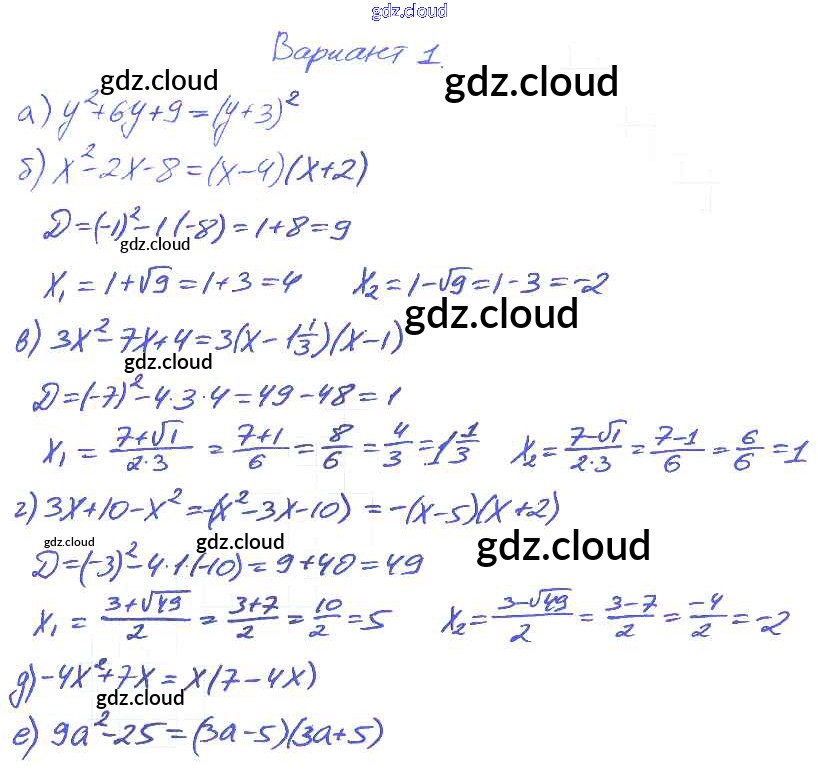 gdz.cloud
Вариант 1.
gdz.cloud gdz.cloud
а) y²+6y+9=(y+3)²
б) x²-2x-8=(x-4)(x+2)
D=(-1)²-1(-8)=1+8=9
gdz.cloud
x₁=1+√9=1+3=4 x₂=1-√9=1-3=-2
gdz.cloud
в) 3x²-7x+4=3(x-1 1/3)(x-1)
gdz.cloud
D=(-7)²-4·3·4=49-48=1
x₁=(7+√1)/(2·3)=(7+1)/6=8/6=4/3=1 1/3 x₂=(7-√1)/(2·3)=(7-1)/6=6/6=1
г) 3x+10-x²=-(x²-3x-10)=-(x-5)(x+2)
gdz.cloud gdz.cloud gdz.cloud
D=(-3)²-4·1·(-10)=9+40=49
x₁=(3+√49)/2=(3+7)/2=10/2=5 x₂=(3-√49)/2=(3-7)/2=-4/2=-2
д) -4x²+7x=x(7-4x)
gdz.cloud
е) 9a²-25=(3a-5)(3a+5)